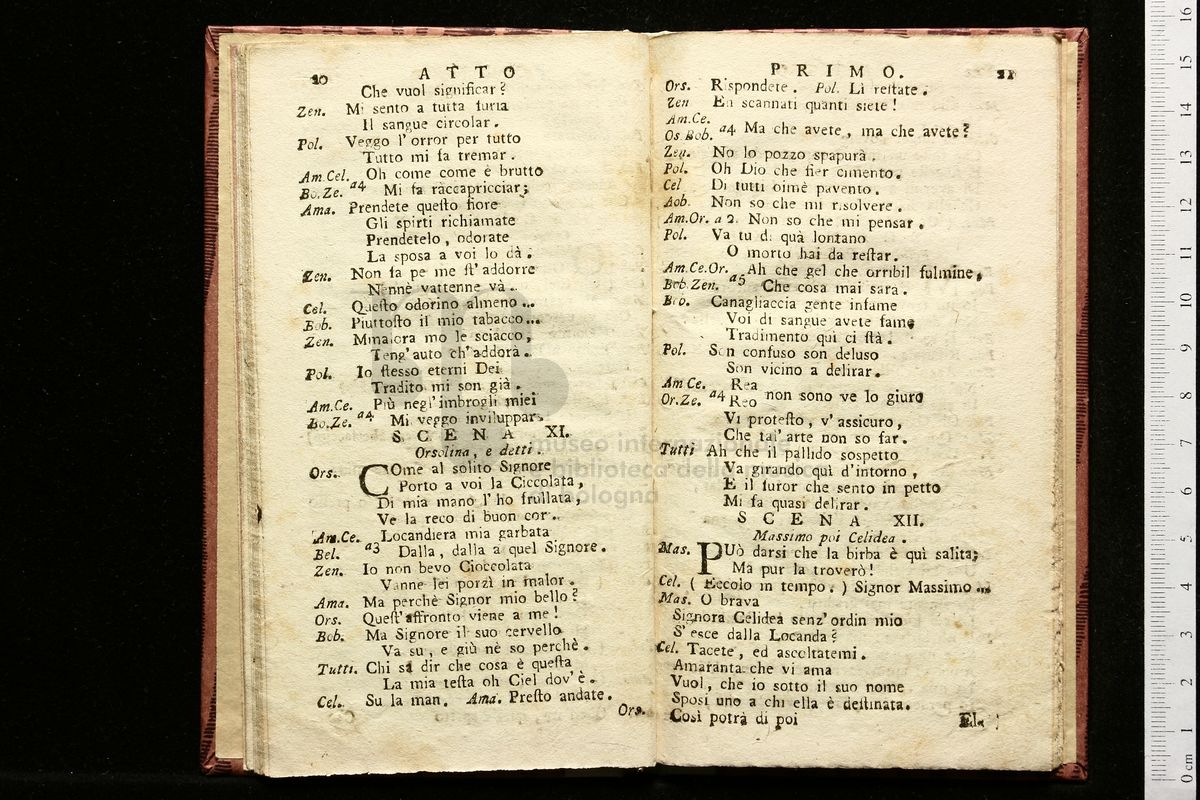 20 ATTO
Che vuol significar?
Zen. Mi sento a tutta furia
Il sangue circolar.
Pol. Veggo l'orror per tutto
Tutto mi fa tremar.
Am.Cel. Oh come come è brutto
Bo.Ze. a4 Mi fa raccapricciar;
Ama. Prendete questo fiore
Gli spirti richiamate
Prendetelo, odorate
La sposa a voi lo dà.
Zen. Non fa pe me st'addorre
Nennè vattenne và..
Cel. Questo odorino almeno...
Bob. Piuttosto il mio tabacco...
Zen. Mmalora mo le sciacco,
Teng'auto ch'addorà..
Pol. Io stesso eterni Dei
Tradito mi son già.
Am.Ce. Più negl'imbrogli miei
Bo.Ze. a4 Mi veggo inviluppar.
SCENA XI.
Orsolina, e detti.
Ors. COme al solito Signore
Porto a voi la Ciccolata,
Di mia mano l'ho frullata,
Ve la reco di buon cor..
Am.Ce. Locandiera mia garbata
Bel. a3 Dalla, dalla a quel Signore.
Zen. Io non bevo Cioccolata
Vanne lei porzì in malor.
Ama. Ma perchè Signor mio bello?
Ors. Quest'affronto viene a me!
Bob. Ma Signore il suo cervello
Va su, e giù nè so perchè.
Tutti. Chi sa dir che cosa è questa
La mia testa oh Ciel dov'è.
Cel. Su la man. Ama. Presto andate.
Ors.
PRIMO. 21
Ors. Rispondete. Pol. Lì restate.
Zen Eh scannati quanti siete!
Am.Ce.
Os.Bob. a4 Ma che avete, ma che avete?
Zen. No lo pozzo spapurà.
Pol. Oh Dio che fier cimento.
Cel Di tutti oimè pavento.
Aob. Non so che mi risolvere.
Am.Or. a 2. Non so che mi pensar.
Pol. Va tu di quà lontano
O morto hai da restar.
Am.Ce.Or. Ah che gel che orribil fulmine,
Bob.Zen. a5 Che cosa mai sara.
Bro. Canagliaccia gente infame
Voi di sangue avete fame
Tradimento qui ci stà.
Pol. Son confuso son deluso
Son vicino a delirar.
Am Ce. Rea
Or.Ze. a4 Reo non sono ve lo giuro
Vi protesto, v'assicuro,
Che tal'arte non so far.
Tutti Ah che il pallido sospetto
Va girando quì d'intorno,
E il furor che sento in petto
Mi fa quasi delirar.
SCENA XII.
Massimo poi Celidea.
Mas. PUò darsi che la birba è quì salita;
Ma pur la troverò!
Cel. (Eccolo in tempo.) Signor Massimo...
Mas. O brava
Signora Celidea senz'ordin mio
S'esce dalla Locanda?
Cel. Tacete, ed ascoltatemi.
Amaranta che vi ama
Vuol, che io sotto il suo nome
Sposi uno a chi ella è destinata.
Così potrà di poi
Ela
museo internazionale
biblioteca della
bologna
16
15
14
13
12
11
10
9
8
7
6
5
4
3
2
1
0 cm